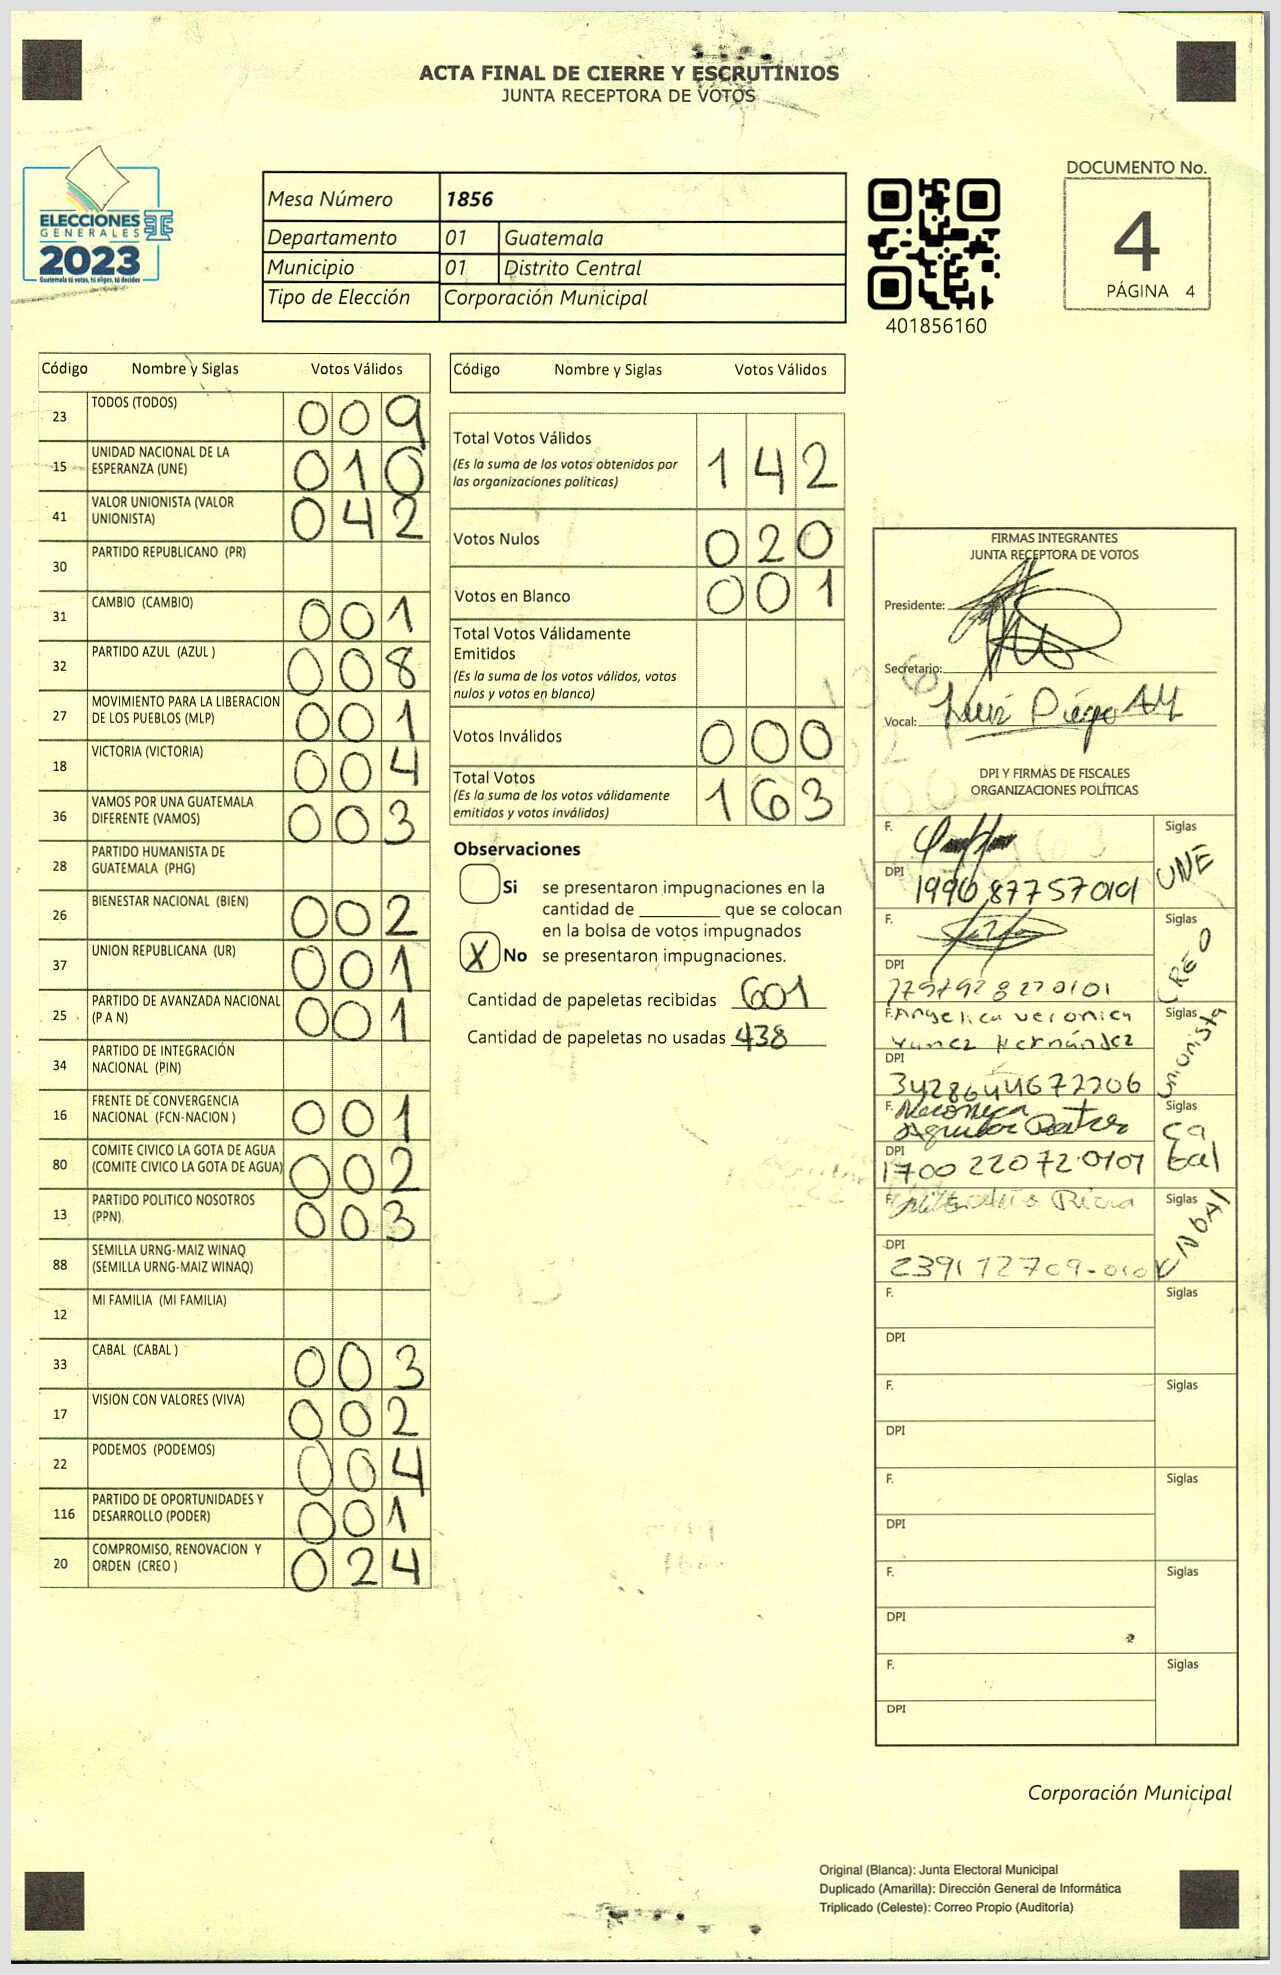 ACTA FINAL DE CIERRE Y ESCRUTINIOS
JUNTA RECEPTORA DE VOTOS
ELECCIONES
GENERALES
2023
Guatemala tú votas, tú eliges, tú decides
Mesa Número 1856
Departamento 01 Guatemala
Municipio 01 Distrito Central
Tipo de Elección Corporación Municipal
401856160
DOCUMENTO No.
4
PÁGINA 4
Código Nombre y Siglas Votos Válidos
23 TODOS (TODOS) 009
15 UNIDAD NACIONAL DE LA ESPERANZA (UNE) 010
41 VALOR UNIONISTA (VALOR UNIONISTA) 042
30 PARTIDO REPUBLICANO (PR)
31 CAMBIO (CAMBIO) 001
32 PARTIDO AZUL (AZUL ) 008
27 MOVIMIENTO PARA LA LIBERACION DE LOS PUEBLOS (MLP) 001
18 VICTORIA (VICTORIA) 004
36 VAMOS POR UNA GUATEMALA DIFERENTE (VAMOS) 003
28 PARTIDO HUMANISTA DE GUATEMALA (PHG)
26 BIENESTAR NACIONAL (BIEN) 002
37 UNION REPUBLICANA (UR) 001
25 PARTIDO DE AVANZADA NACIONAL (P A N) 001
34 PARTIDO DE INTEGRACIÓN NACIONAL (PIN)
16 FRENTE DE CONVERGENCIA NACIONAL (FCN-NACION ) 001
80 COMITE CIVICO LA GOTA DE AGUA (COMITE CIVICO LA GOTA DE AGUA) 002
13 PARTIDO POLITICO NOSOTROS (PPN) 003
88 SEMILLA URNG-MAIZ WINAQ (SEMILLA URNG-MAIZ WINAQ)
12 MI FAMILIA (MI FAMILIA)
33 CABAL (CABAL ) 003
17 VISION CON VALORES (VIVA) 002
22 PODEMOS (PODEMOS) 004
116 PARTIDO DE OPORTUNIDADES Y DESARROLLO (PODER) 001
20 COMPROMISO, RENOVACION Y ORDEN (CREO ) 024
Código Nombre y Siglas Votos Válidos
Total Votos Válidos 142
(Es la suma de los votos obtenidos por
las organizaciones políticas)
Votos Nulos 020
Votos en Blanco 001
Total Votos Válidamente
Emitidos
(Es la suma de los votos válidos, votos
nulos y votos en blanco)
Votos Inválidos 000
Total Votos 163
(Es la suma de los votos válidamente
emitidos y votos inválidos)
Observaciones
Si se presentaron impugnaciones en la
cantidad de ________ que se colocan
en la bolsa de votos impugnados
X No se presentaron impugnaciones.
Cantidad de papeletas recibidas 601
Cantidad de papeletas no usadas 438
FIRMAS INTEGRANTES
JUNTA RECEPTORA DE VOTOS
Presidente:
Secretario:
Vocal: Luis Diego
DPI Y FIRMAS DE FISCALES
ORGANIZACIONES POLÍTICAS
F. Siglas UNE
DPI
F. Siglas CREO
DPI
F. Angelica Veronica Siglas Unionista
Hernández
DPI 3428644672206
F. Veronica Siglas Cabal
Aguilar
DPI 1700 22072 0101
F. Siglas
DPI
F. Siglas
DPI
F. Siglas
DPI
F. Siglas
DPI
F. Siglas
DPI
F. Siglas
DPI
Corporación Municipal
Original (Blanca): Junta Electoral Municipal
Duplicado (Amarilla): Dirección General de Informática
Triplicado (Celeste): Correo Propio (Auditoría)